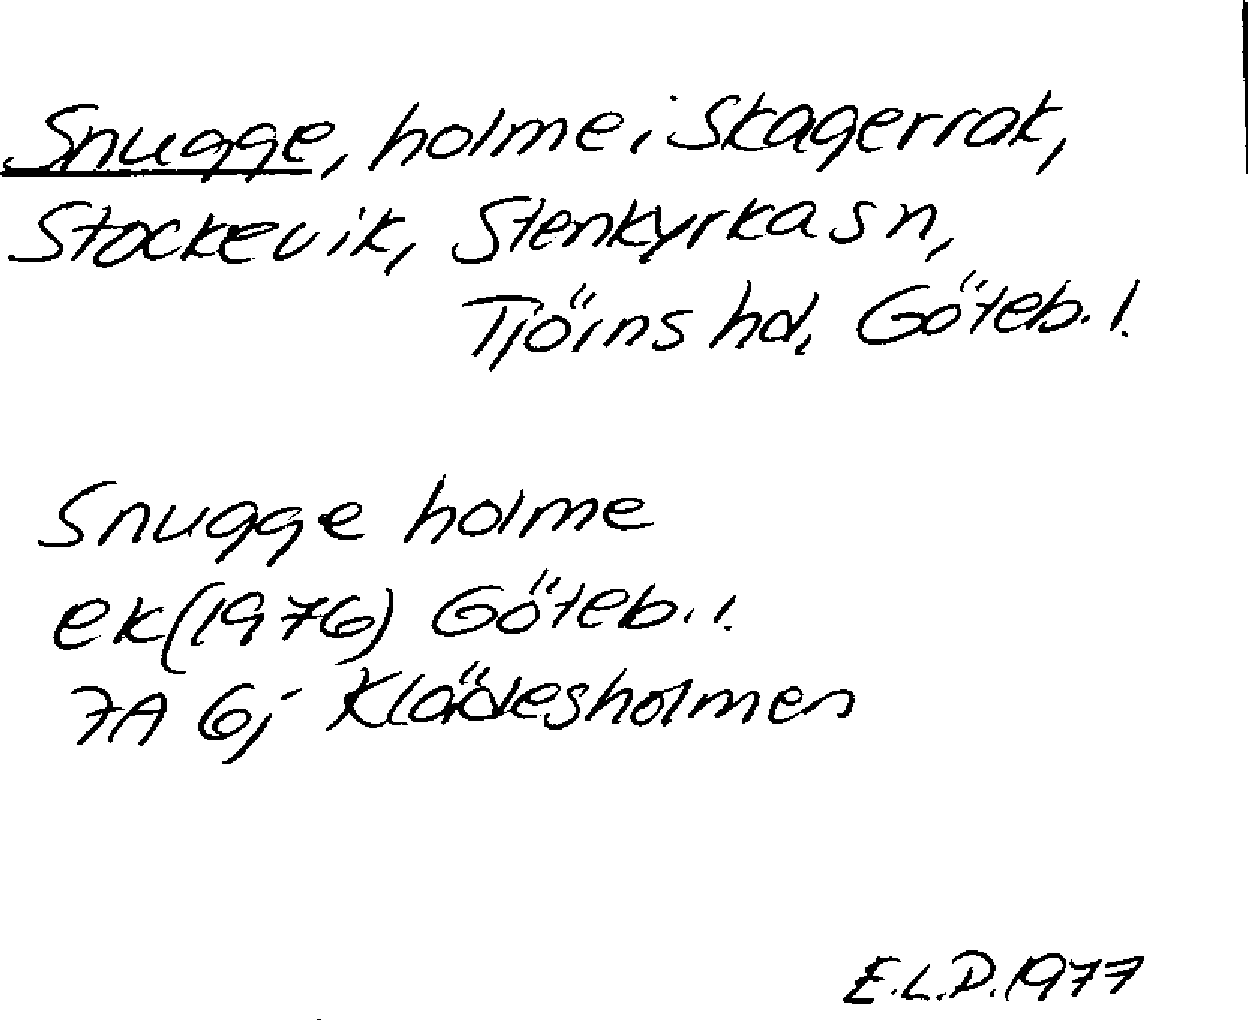 Snugge, holme i Skagerrak,
Stockevik, Stenkyrka sn,
Tjörns hd, Göteb. l.
Snugge holme
ek (1976) Göteb. l.
7A 6j Klädesholmen
E.L.D. 1977